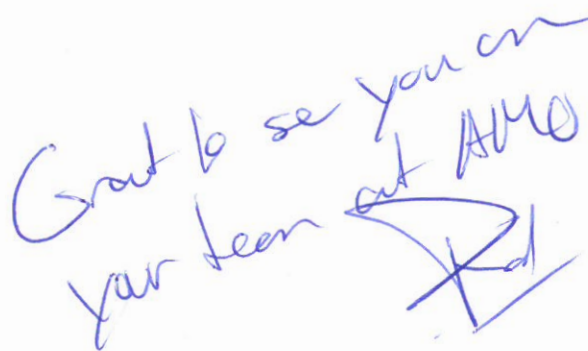 Great to see you an
your team at AMO